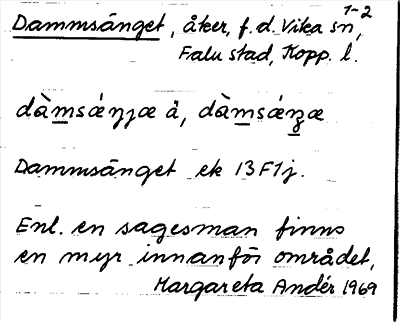 Dammsänget, åker, f.d. Vika sn¹⁻²,
Falu stad, Kopp. l.
dàmsǽŋjæ å, dàmsǽŋʒæ
Dammsänget ek 13F1j.
Enl. en sagesman finns
en myr innanför området,
Margareta Andér 1969